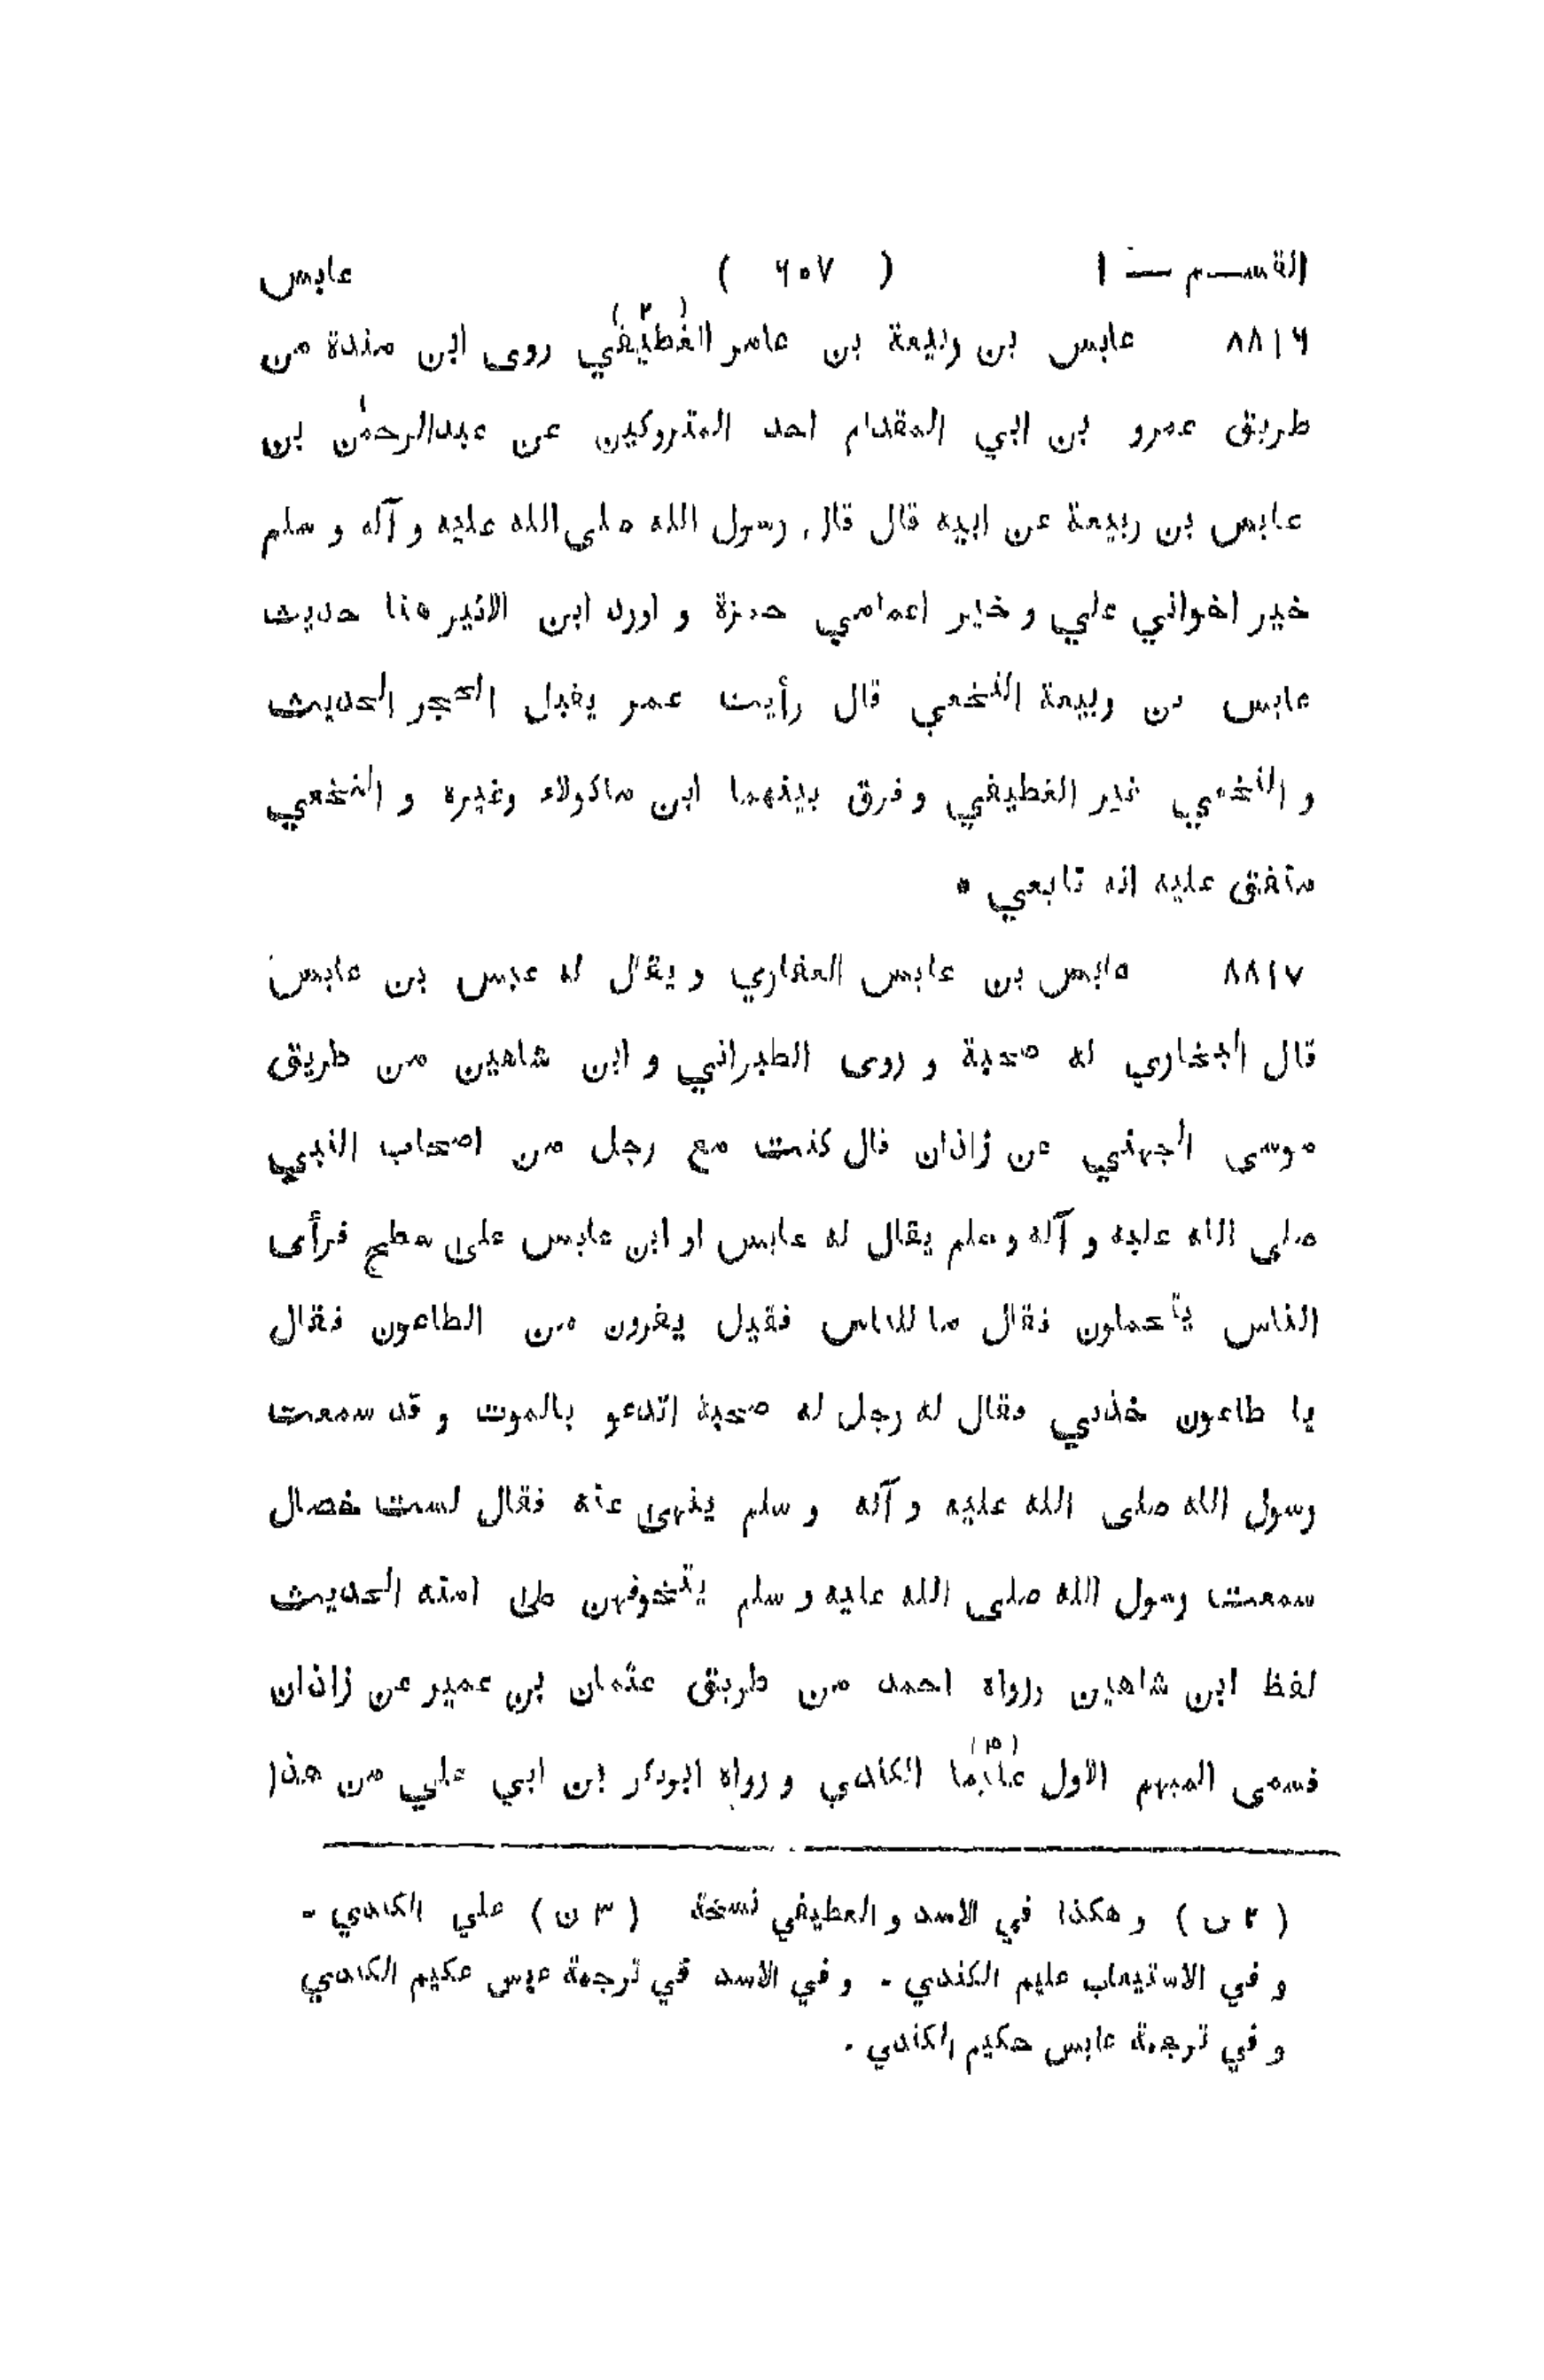 القسم — ١ ( ٦٠٧ ) عابس
٨٨١٦ عابس بن ربيعة بن عامر الغطيفي (٢) روى ابن مندة من
طريق عمرو بن ابي المقدام احد المتروكين عن عبدالرحمٰن بن
عابس بن ربيعة عن ابيه قال قال رسول الله صلى الله عليه و آله و سلم
خير اخواني علي و خير اعمامي حمزة و اورد ابن الاثير هنا حديث
عابس بن ربيعة النخعي قال رأيت عمر يقبل الحجر الحديث
و النخعي غير الغطيفي و فرق بينهما ابن ماكولاء وغيره و النخعي
متفق عليه انه تابعي *
٨٨١٧ عابس بن عابس الغفاري و يقال له عبس بن عابس
قال البخاري له صحبة و روى الطبراني و ابن شاهين من طريق
موسى الجهني عن زاذان قال كنت مع رجل من اصحاب النبي
صلى الله عليه و آله و سلم يقال له عابس او ابن عابس على سطح فرأى
الناس يتحملون فقال ما للناس فقيل يفرون من الطاعون فقال
يا طاعون خذني فقال له رجل له صحبة اتدعو بالموت و قد سمعت
رسول الله صلى الله عليه و آله و سلم ينهى عنه فقال لست خصال
سمعت رسول الله صلى الله عليه و سلم يتخوفهن على امته الحديث
لفظ ابن شاهين ورواه احمد من طريق عثمان بن عمير عن زاذان
فسمى المبهم الاول عليما (٣) الكندي و رواه ابوبكر ابن ابي علي من هذا
( ٢ ن ) و هكذا في الاسد و العطيفي نسخة ( ٣ ن ) علي الكندي -
و في الاستيعاب عليم الكندي - و في الاسد في ترجمة عبس عكيم الكندي
و في ترجمة عابس حكيم الكندي -